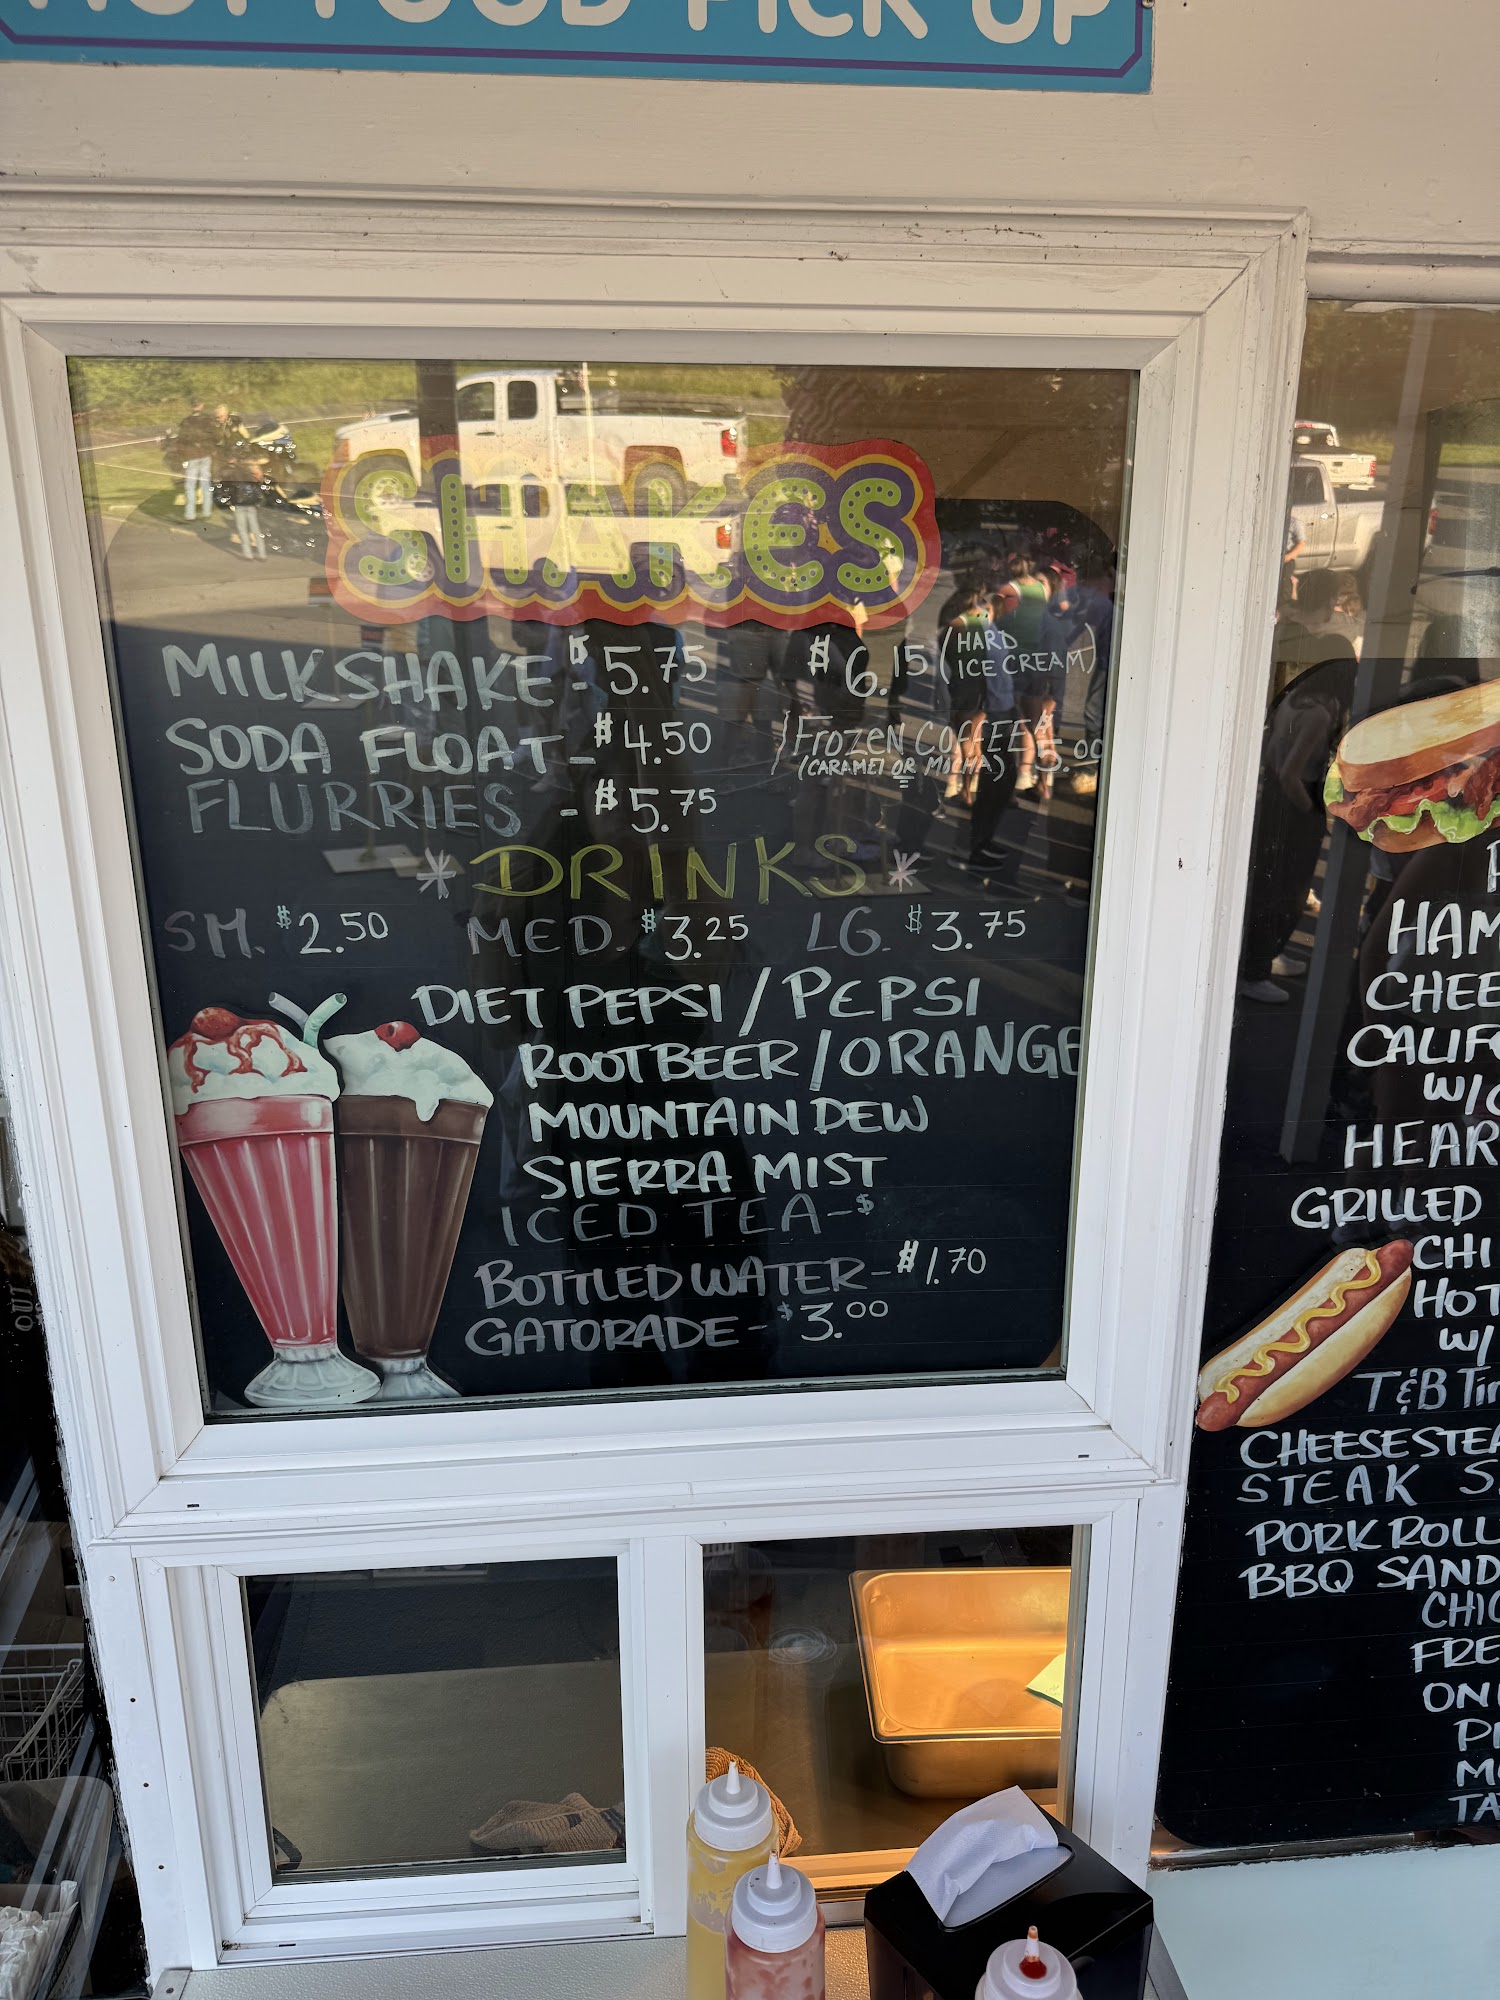 HOT FOOD PICK UP
SHAKES
MILKSHAKE - $5.75 $6.15 (HARD ICE CREAM)
SODA FLOAT - $4.50 FROZEN COFFEE $5.00
(CARAMEL OR MOCHA)
FLURRIES - $5.75
* DRINKS *
SM. $2.50 MED. $3.25 LG. $3.75
DIET PEPSI / PEPSI
ROOTBEER / ORANGE
MOUNTAIN DEW
SIERRA MIST
ICED TEA - $
BOTTLED WATER - $1.70
GATORADE - $3.00
HAM
CHEE
CALIFO
W/
HEAR
GRILLED
CHI
HOT
W/
T&B
CHEESESTEA
STEAK S
PORK ROLL
BBQ SAND
CHIC
FRE
ONI
P
M
TA
OUT